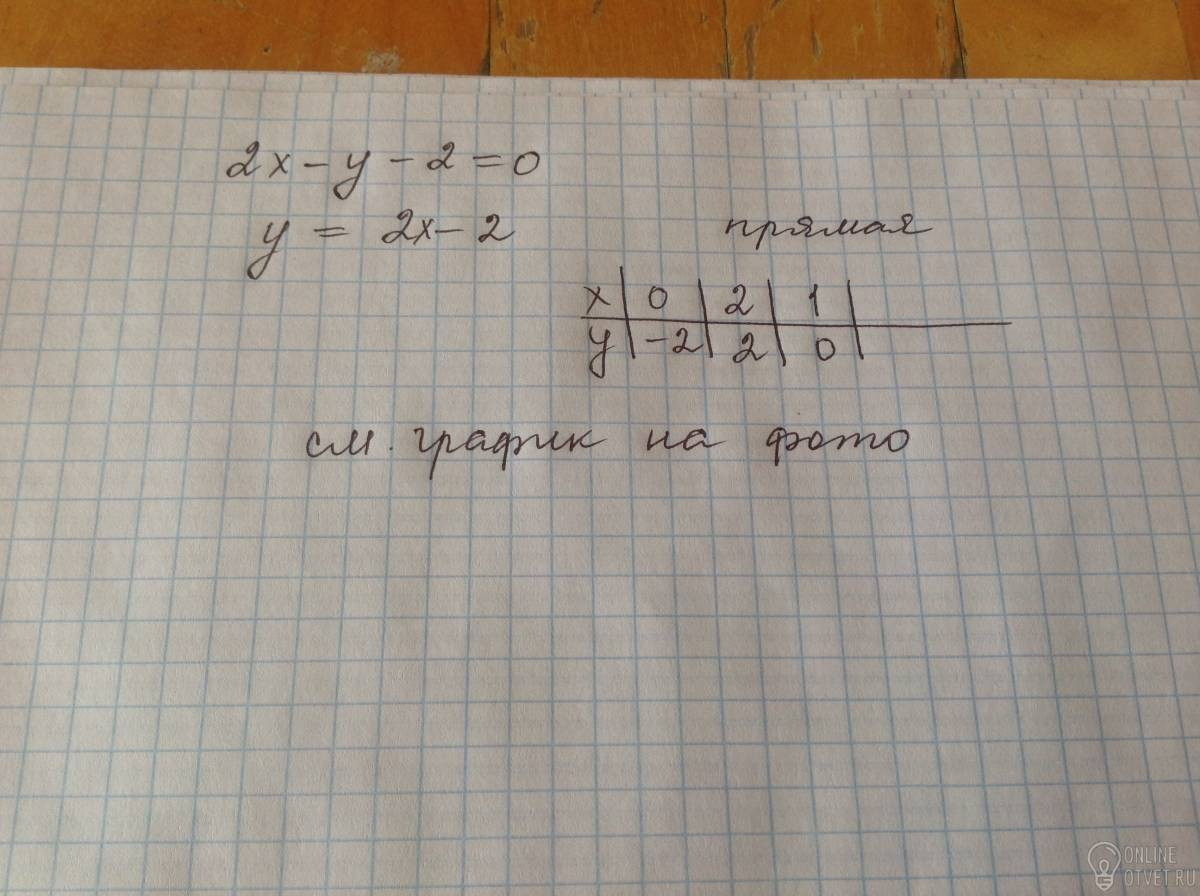 2x - y - 2 = 0
y = 2x - 2
прямая
x | 0 | 2 | 1 |
y | -2 | 2 | 0 |
см. график на фото
ONLINE
OTVET.RU